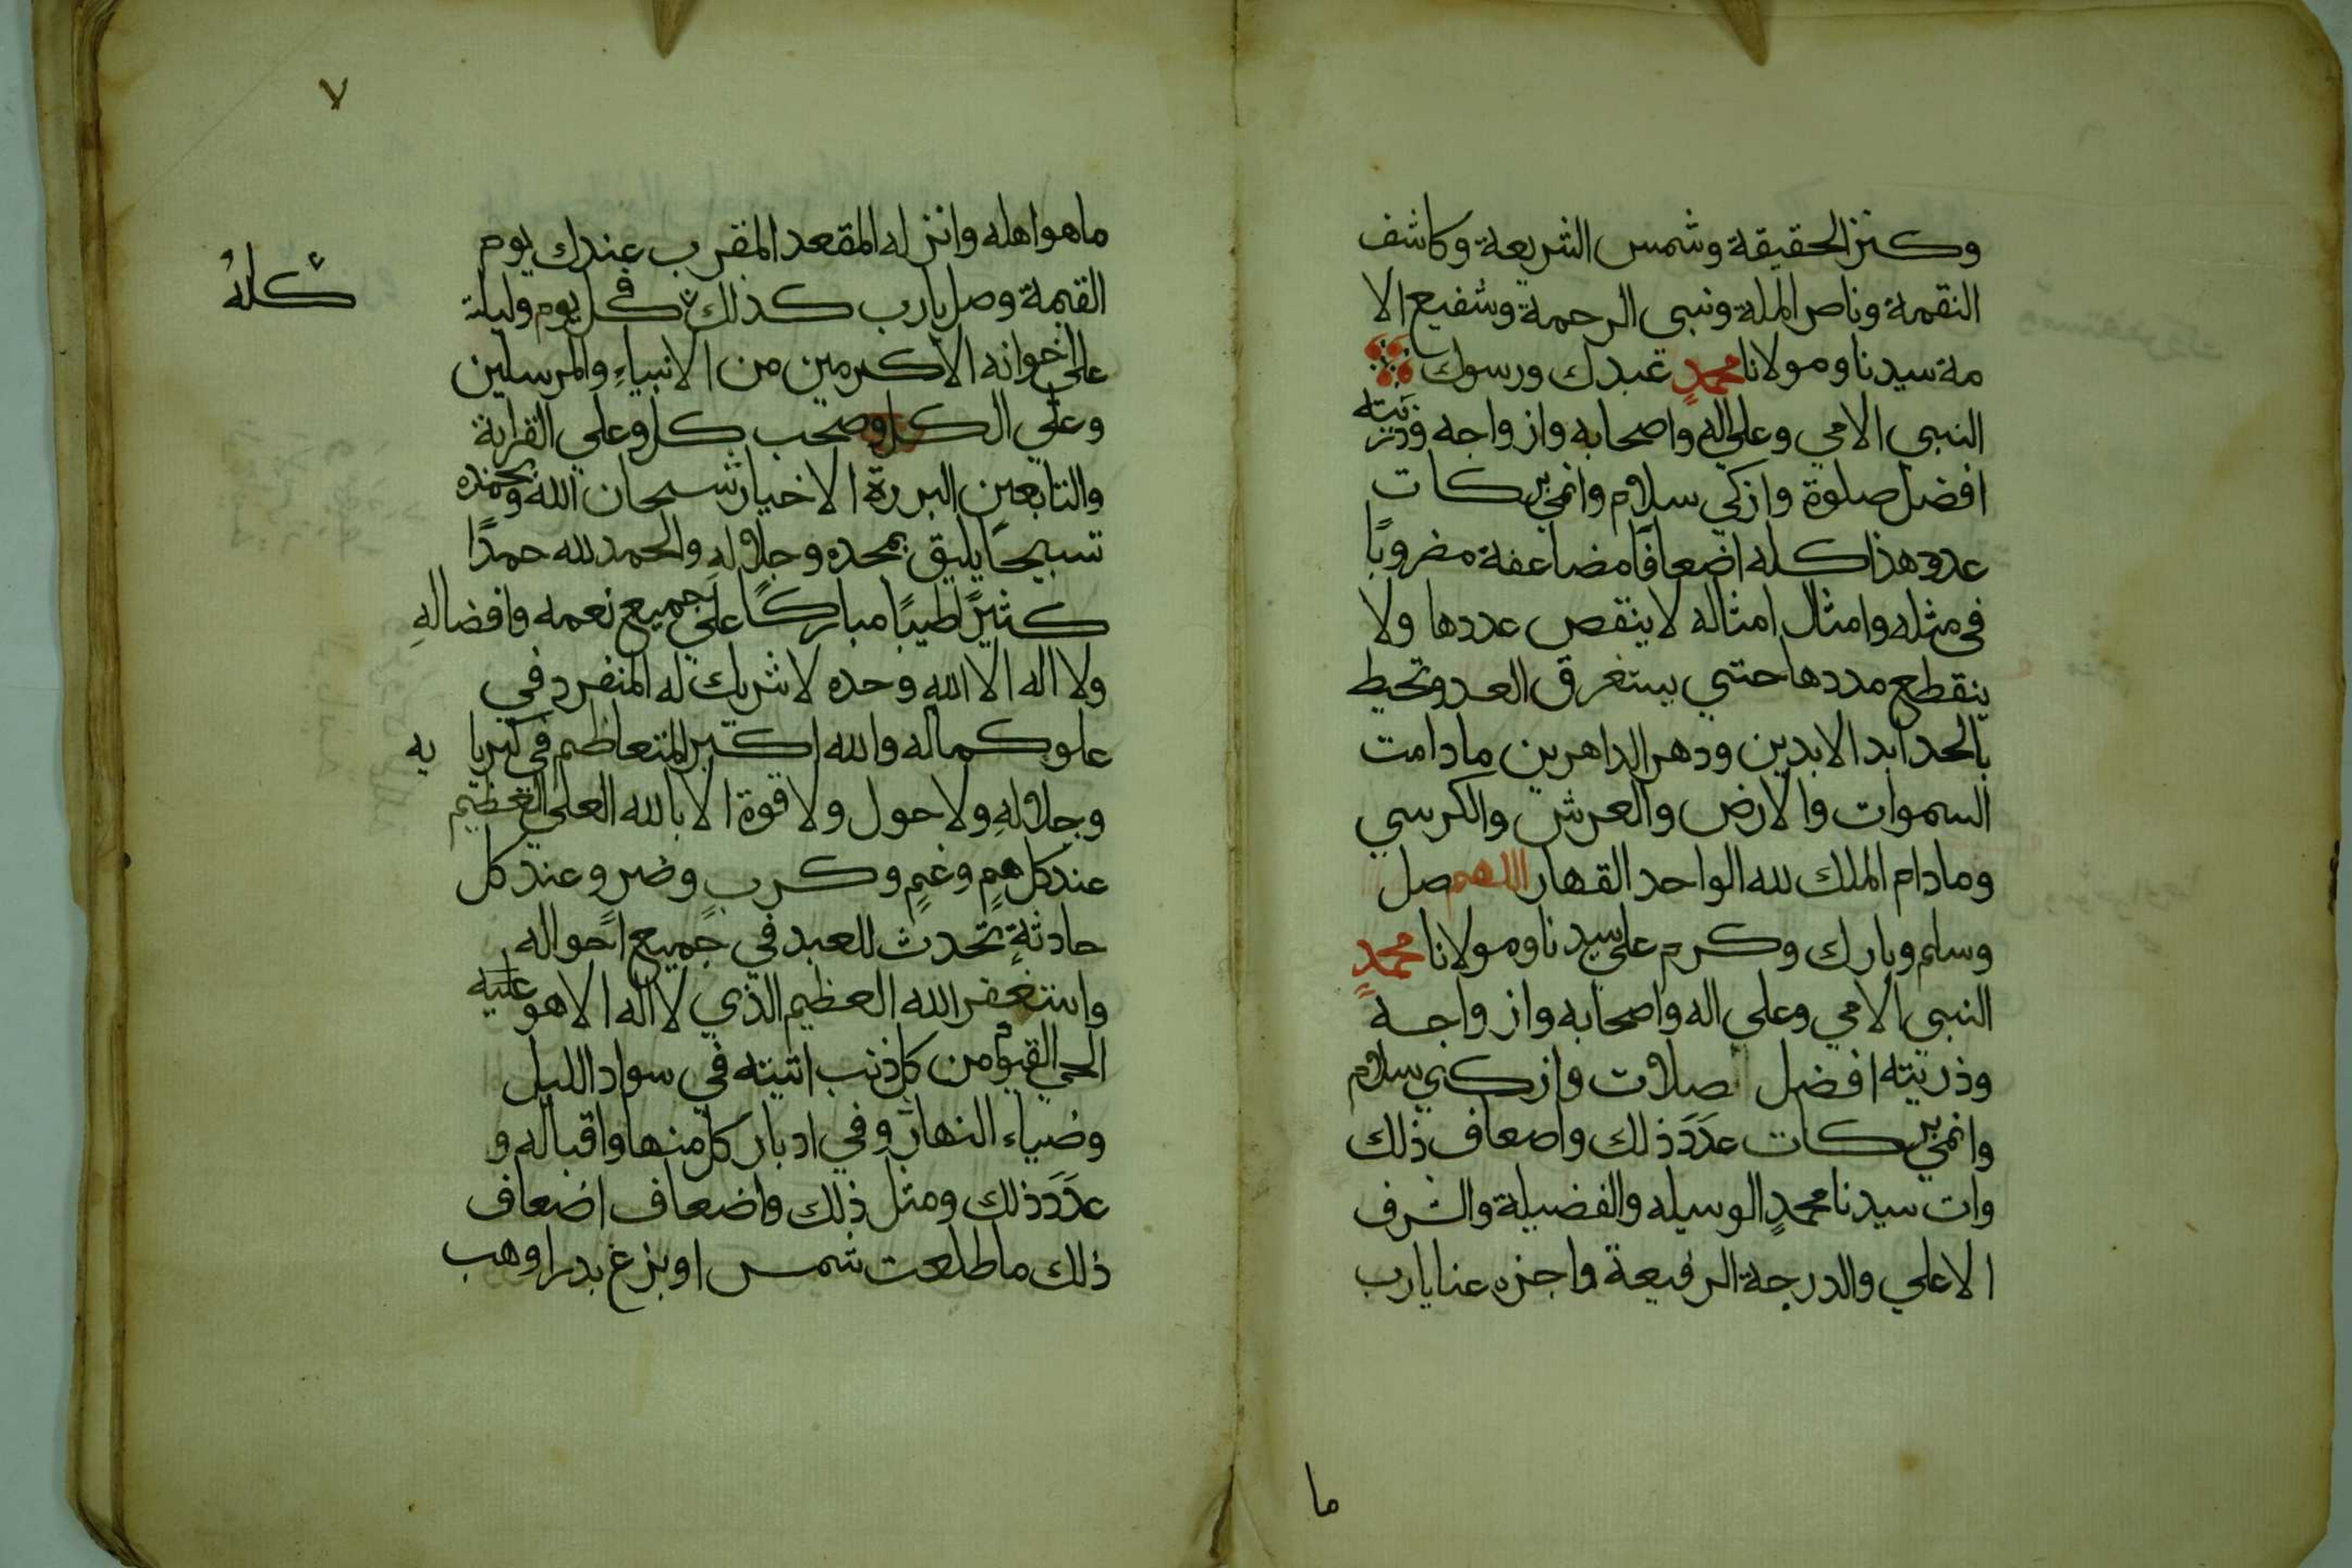 وكنز الحقيقة وشمس الشريعة وكاشف
النقمة وناصر الملة ونبي الرحمة وشفيع الا
مة سيدنا ومولانا محمدٍ عبدك ورسولك
النبي الامي وعلي اله واصحابه وازواجه وذريته
افضل صلوة وازكي سلام وانمي بركات
عدد هذا كله اضعافًا مضاعفة مضروبًا
في مثله وامثال امثاله لا ينقص عددها ولا
ينقطع مددها حتي يستغرق العد وتحيط
بالحد ابد الابدين ودهر الداهرين ما دامت
السموات والارض والعرش والكرسي
وما دام الملك لله الواحد القهار اللهم صل
وسلم وبارك وكرم علي سيدنا ومولانا محمدٍ
النبي الامي وعلي اله واصحابه وازواجه
وذريته افضل صلات وازكي سلام
وانمي بركات عدَدَ ذلك واضعاف ذلك
وات سيدنا محمدٍ الوسيله والفضيلة والشرف
الاعلي والدرجة الرفيعة واجزه عنا يارب
ما
٧
ما هو اهله وانزله المقعد المقرب عندك يوم
القيمة وصل يارب كذلك في كل يوم وليلة
كله
علي اخوانه الاكرمين من الانبياءِ والمرسلين
وعلي ال كل وصحب كل وعلي القرابة
والتابعين البررة الاخيار سبحان الله وبحمده
تسبيحًا يليق بمجده وجلاله والحمد لله حمدًا
كثيرًا طيبًا مباركًا علي جميع نعمه وافضالهِ
ولا اله الا الله وحده لا شريك له المنفرد في
علو كماله والله اكبر المتعاظم في كبريا يه
وجلالهِ ولا حول ولا قوة الا بالله العلي العظيم
عند كل همٍ وغمٍ وكربٍ وضرٍ وعند كل
حادثةٍ تحدث للعبد في جميع احواله
واستغفر الله العظيم الذي لا اله الا هو عليه
الحي القيوم من كل ذنب اتيته في سواد الليل
وضياء النهار وفي ادبار كل منها واقباله و
عدَدَ ذلك ومثل ذلك واضعاف اضعاف
ذلك ما طلعت شمس او بزغ بدر او هب